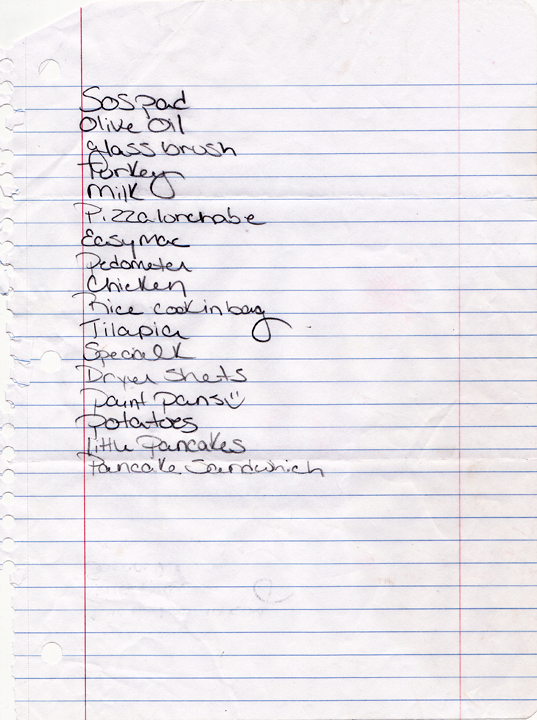 Sos pad
Olive Oil
glass brush
Turkey
Milk
Pizza lunchabe
Easy Mac
Pedometer
Chicken
Rice cook in bag
Tilapia
Special K
Dryer Shets
paint pans
potatoes
Little Pancakes
Pancake Sandwhich